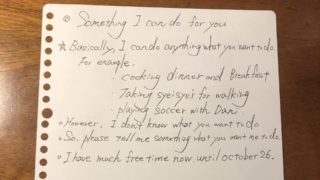 ◎ Something I can do for you
☆ Basically, I can do anything what you want to do.
For example,
・Cooking dinner and Breakfast
・Taking syeisyei for walking
・playing soccer with Dani
• However, I don't know what you want to do
• So, please tell me something what you want me to do.
• I have much free time now until October 26.